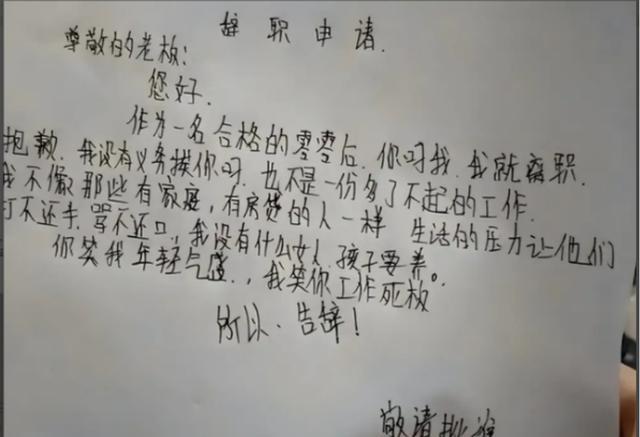 辞职申请
尊敬的老板:
您好.
作为一名合格的零零后.你叼我.我就离职.
抱歉.我没有义务挨你叼.也不是一份多了不起的工作.
我不像那些有家庭,有房贷的人一样 生活的压力让他们
打不还手.骂不还口,我没有什么女人.孩子要养。
你笑我年轻气盛.,我笑你工作死板
所以、告辞!
敬请批准